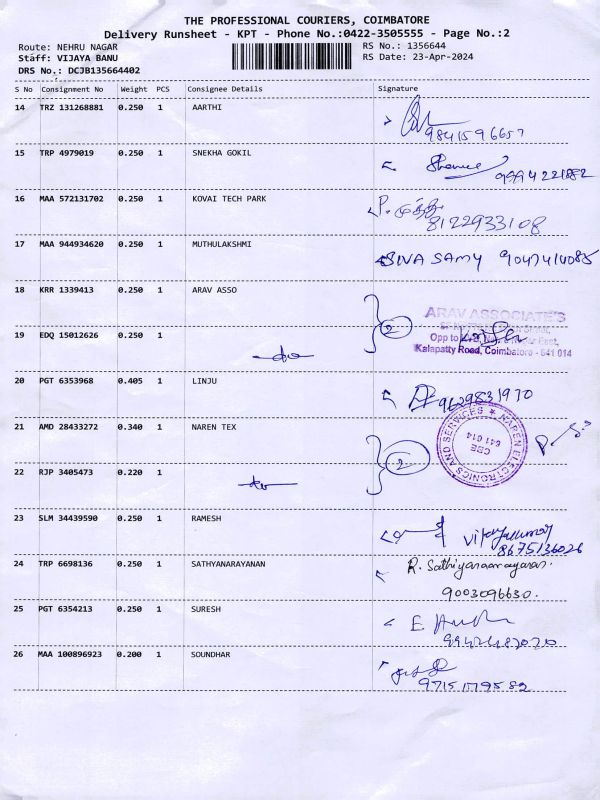 THE PROFESSIONAL COURIERS, COIMBATORE
Delivery Runsheet - KPT - Phone No.:0422-3505555 - Page No.:2
Route: NEHRU NAGAR RS No.: 1356644
Staff: VIJAYA BANU RS Date: 23-Apr-2024
DRS No.: DCJB135664402
S No Consignment No Weight PCS Consignee Details Signature
14 TRZ 131268881 0.250 1 AARTHI
9841596657
15 TRP 4979019 0.250 1 SNEKHA GOKIL
9994221882
16 MAA 572131702 0.250 1 KOVAI TECH PARK
8122933108
17 MAA 944934620 0.250 1 MUTHULAKSHMI SIVA SAMY
18 KRR 1339413 0.250 1 ARAV ASSO
2 ARAV ASSOCIATE'S
19 EDQ 15012626 0.250 1 Opp to
Kalapatty Road, Coimbatore - 641 014
20 PGT 6353968 0.405 1 LINJU
9629831970
21 AMD 28433272 0.340 1 NAREN TEX
NAREN ELECTRONICS AND SERVICES
CBE
641 014
2
22 RJP 3405473 0.220 1
23 SLM 34439590 0.250 1 RAMESH
8675136026
24 TRP 6698136 0.250 1 SATHYANARAYANAN R. Sathiyanaarayanan.
9003096630.
25 PGT 6354213 0.250 1 SURESH
26 MAA 100896923 0.200 1 SOUNDHAR